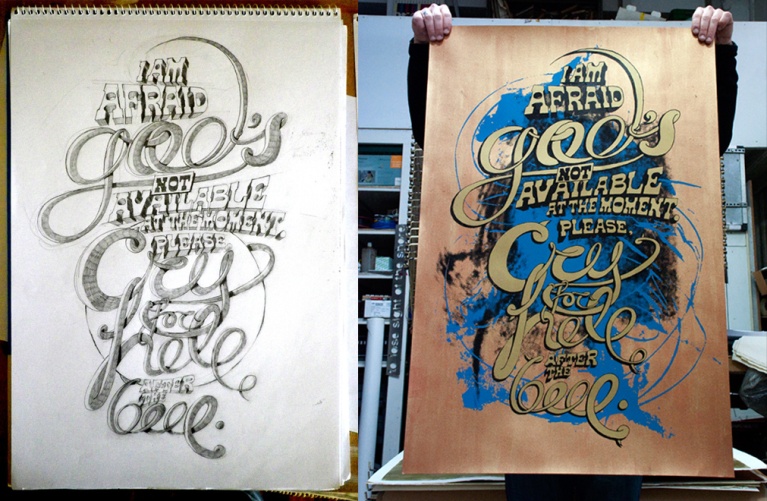 I AM
AFRAID
god's
NOT
AVAILABLE
AT THE MOMENT.
PLEASE,
Cry
for
help
AFTER
THE
beep.
I AM
AFRAID
god's
NOT
AVAILABLE
AT THE MOMENT.
PLEASE,
Cry
for
help
AFTER
THE
beep.